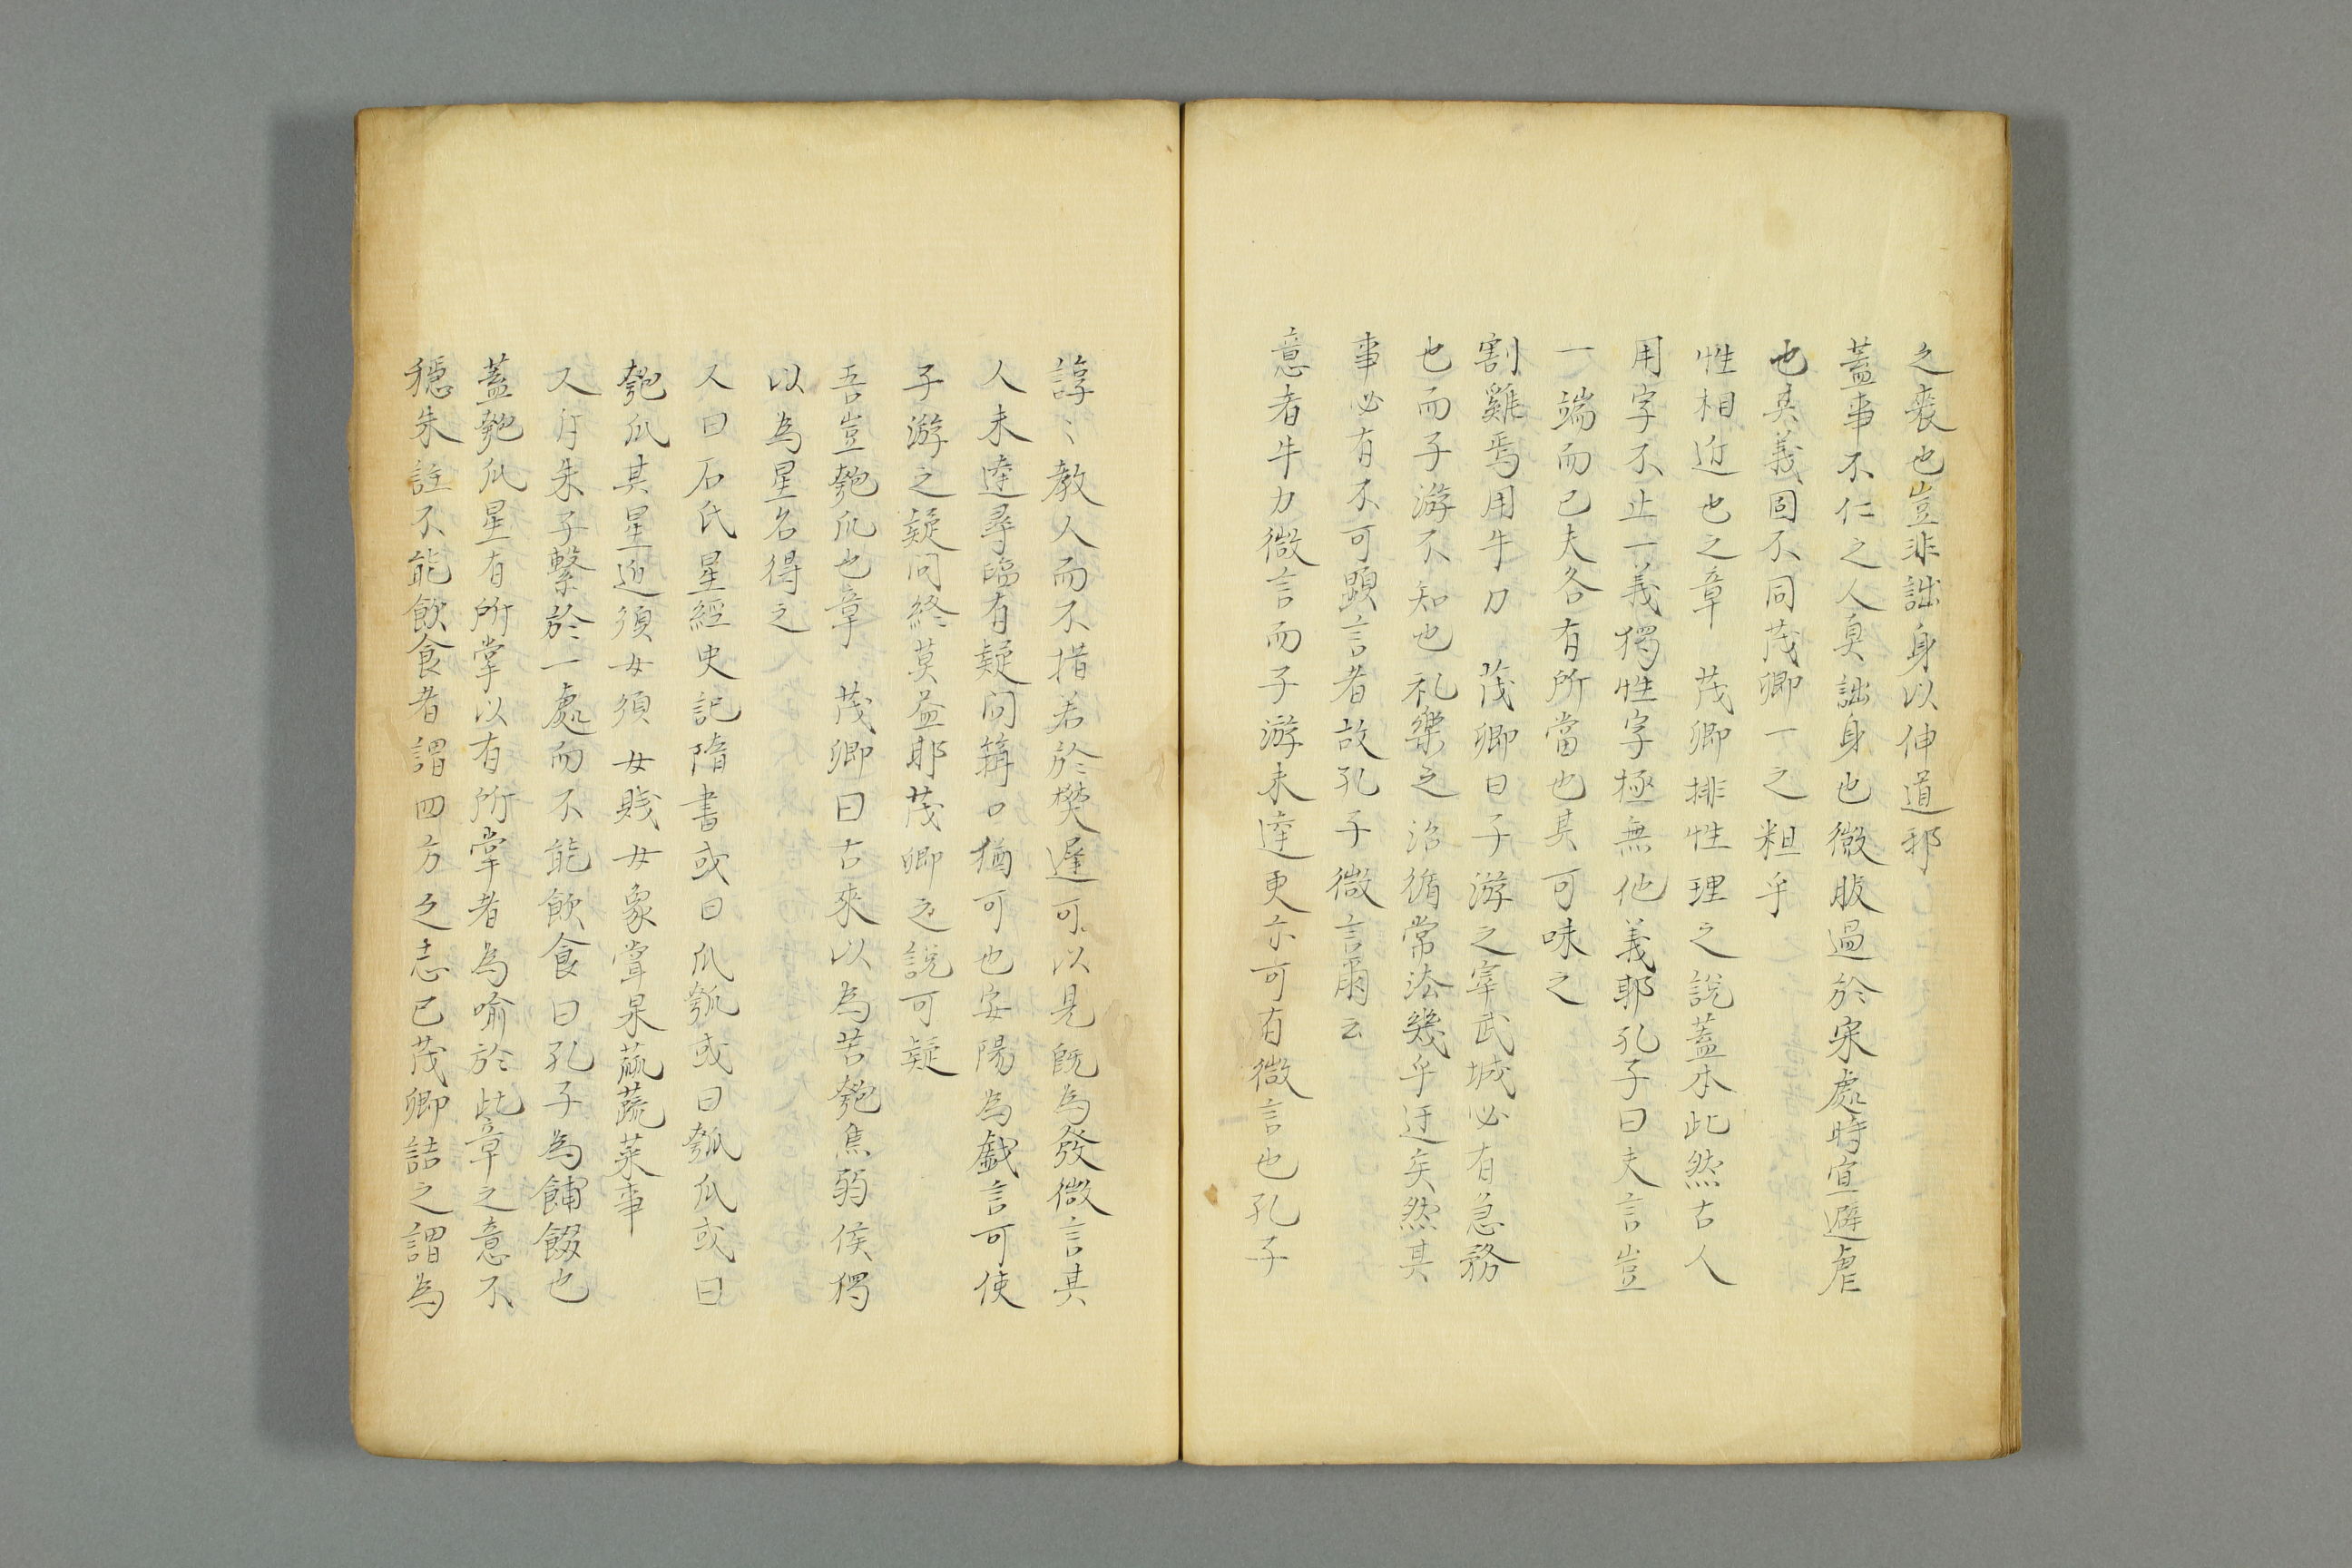 之喪也豈非詘身以伸道邪
蓋事不仁之人真詘身也微服過於宋處時宜避虐
也其義固不同茂卿一之粗乎
性相近也之章　茂卿排性理之說蓋本此然古人
用字不止一義獨性字極無他義耶孔子曰夫言豈
一端而已夫各有所當也其可味之
割雞焉用牛刀　茂卿曰子游之宰武城必有急務
也而子游不知也礼樂之治循常法幾乎迂矣然其
事必有不可顕言者故孔子微言爾云
意者牛刀微言而子游未達更亦可有微言也孔子
諄〻教人而不措若於樊遲可以見既為發微言其
人未達尋臨有疑問箝口猶可也安陽為戲言可使
子游之疑問終莫益耶茂卿之說可疑
吾豈匏瓜也章　茂卿曰古來以為苦匏焦弱侯獨
以為星名得之
又曰石氏星經史記隋書或曰瓜瓠或曰瓠瓜或曰
匏瓜其星近須女須女賤女象掌果蓏蔬菜事
又斥朱子繫於一處而不能飲食曰孔子為餔餟也
蓋匏瓜星有所掌以有所掌者為喻於此章之意不
穩朱註不能飲食者謂四方之志已茂卿詰之謂為